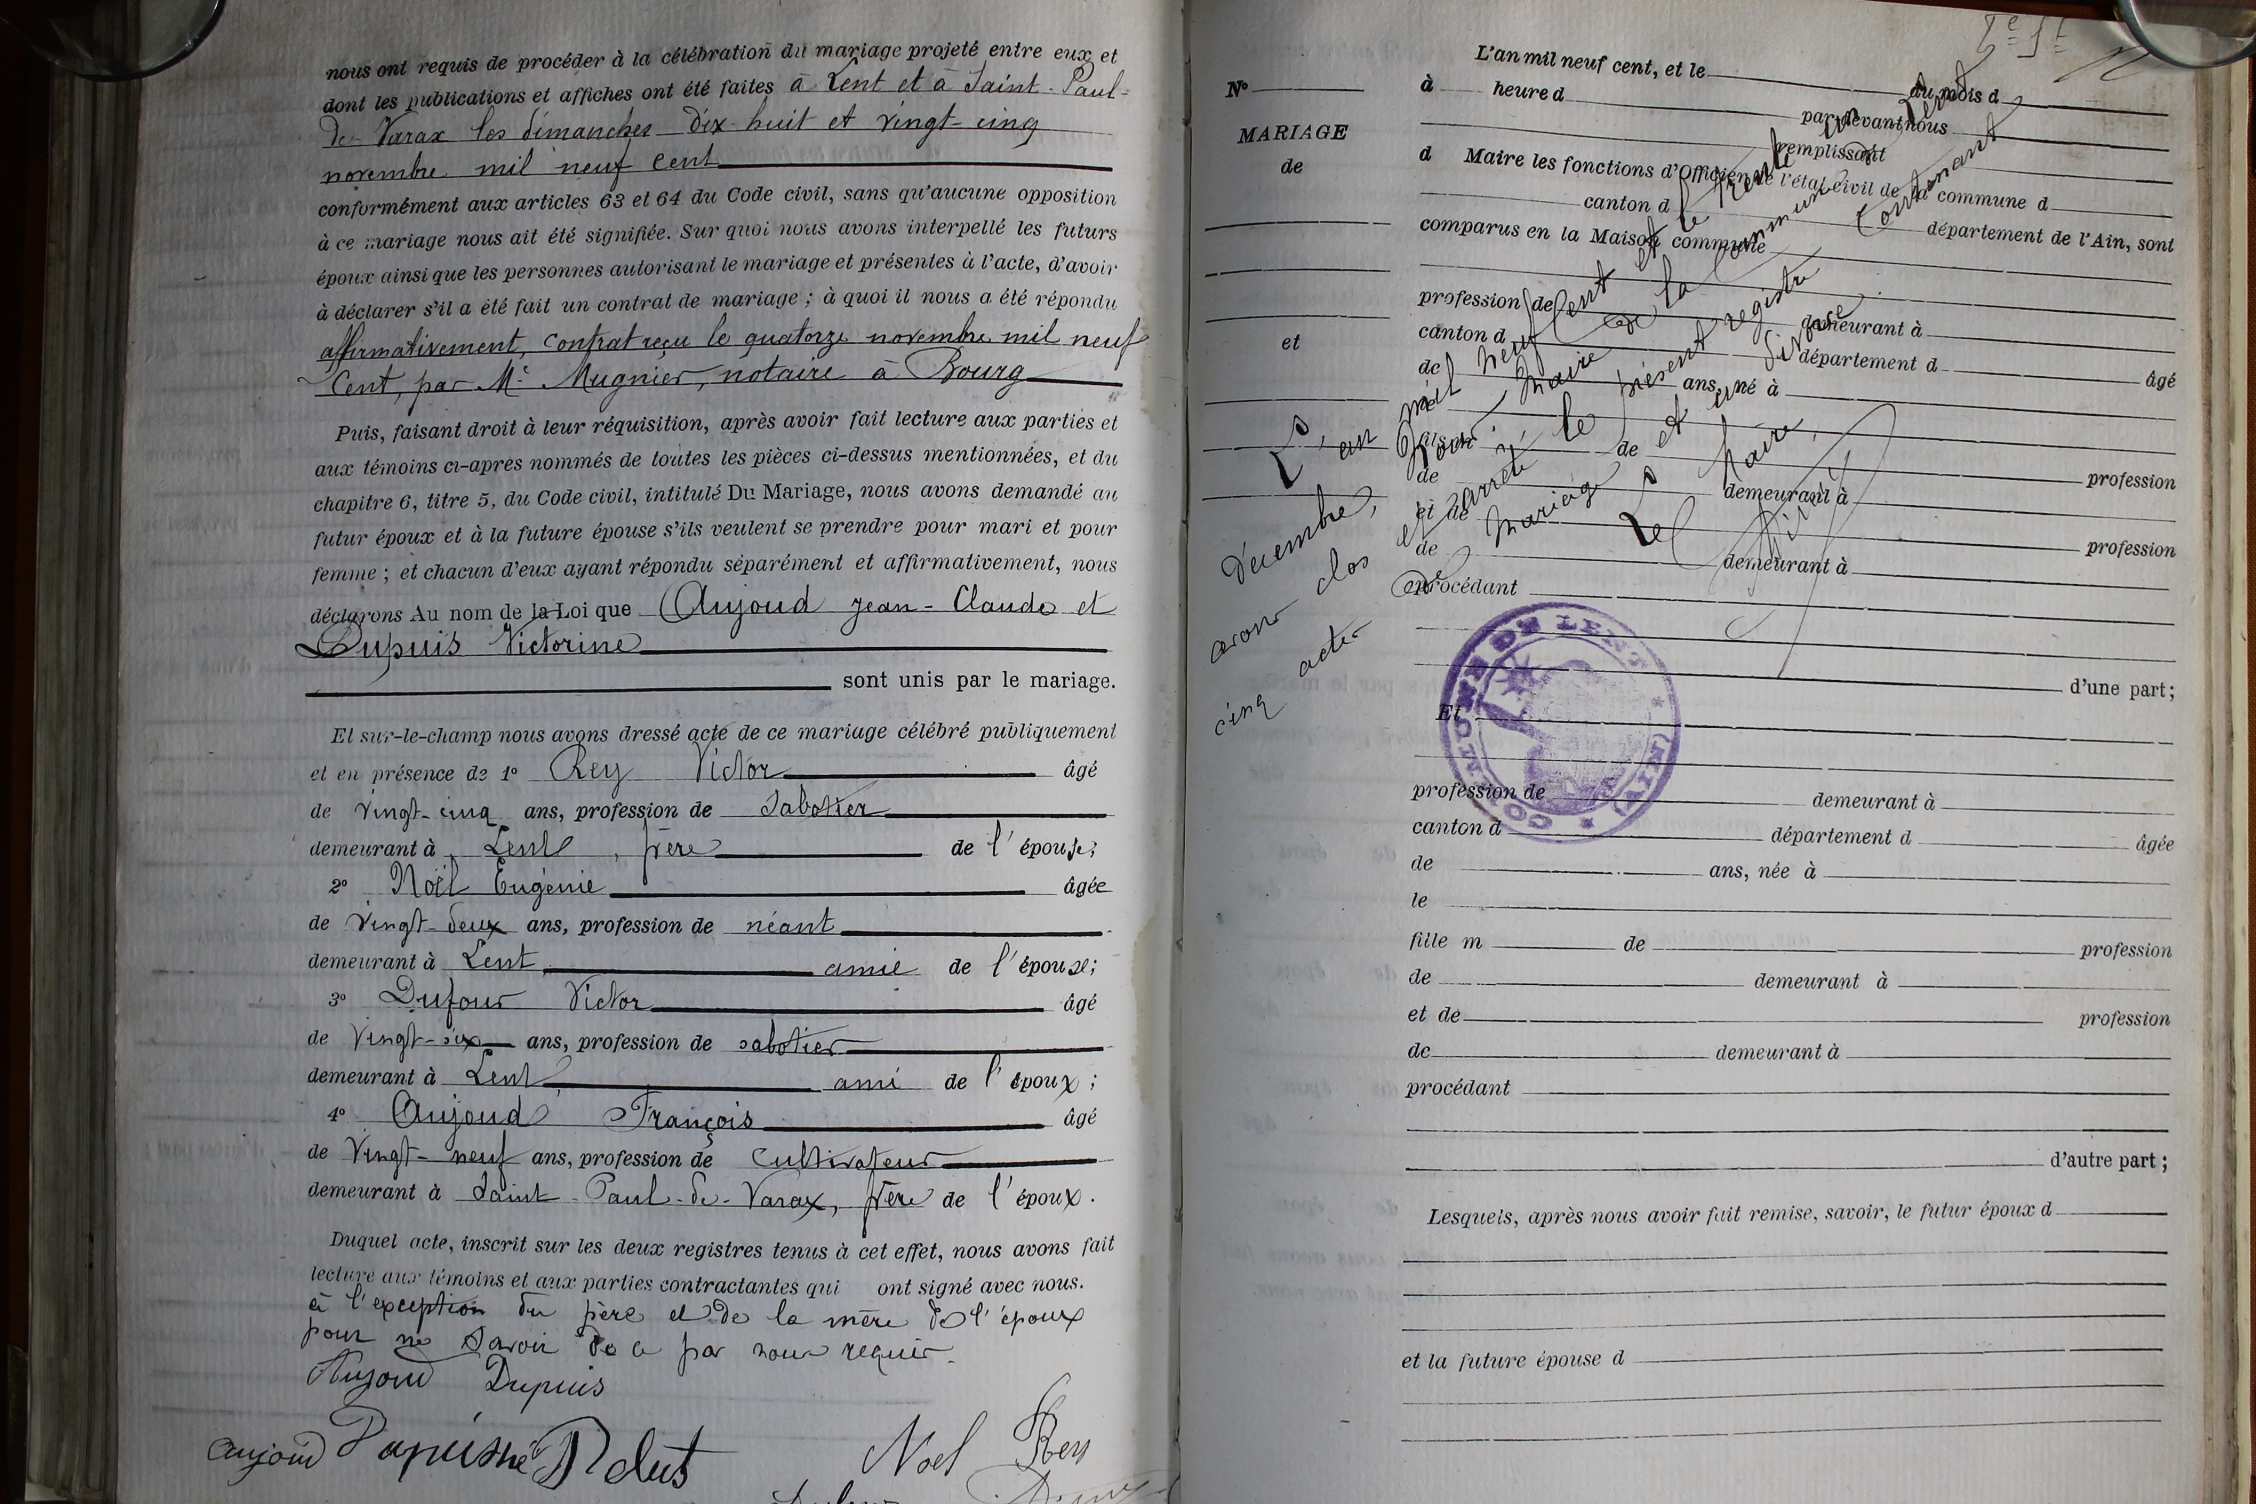 nous ont requis de procéder à la célébration du mariage projeté entre eux et
dont les publications et affiches ont été faites à Lent et à Saint-Paul-
de-Varax les dimanches dix-huit et vingt-cinq
novembre mil neuf cent
conformément aux articles 63 et 64 du Code civil, sans qu'aucune opposition
à ce mariage nous ait été signifiée. Sur quoi nous avons interpellé les futurs
époux ainsi que les personnes autorisant le mariage et présentes à l'acte, d'avoir
à déclarer s'il a été fait un contrat de mariage ; à quoi il nous a été répondu
affirmativement, contrat reçu le quatorze novembre mil neuf
cent, par Me Mugnier, notaire à Bourg
Puis, faisant droit à leur réquisition, après avoir fait lecture aux parties et
aux témoins ci-après nommés de toutes les pièces ci-dessus mentionnées, et du
chapitre 6, titre 5, du Code civil, intitulé Du Mariage, nous avons demandé au
futur époux et à la future épouse s'ils veulent se prendre pour mari et pour
femme ; et chacun d'eux ayant répondu séparément et affirmativement, nous
déclarons Au nom de la Loi que Aujoud Jean-Claude et
Dupuis Victorine
sont unis par le mariage.
Et sur-le-champ nous avons dressé acte de ce mariage célébré publiquement
et en présence de 1° Rey Victor âgé
de vingt-cinq ans, profession de sabotier
demeurant à Lent, frère de l'épouse;
2° Noël Eugénie âgée
de vingt-deux ans, profession de néant
demeurant à Lent amie de l'épouse;
3° Dufour Victor âgé
de vingt-six ans, profession de sabotier
demeurant à Lent ami de l'époux ;
4° Aujoud François âgé
de vingt-neuf ans, profession de cultivateur
demeurant à Saint-Paul-de-Varax, frère de l'époux.
Duquel acte, inscrit sur les deux registres tenus à cet effet, nous avons fait
lecture aux témoins et aux parties contractantes qui ont signé avec nous.
à l'exception du père et de la mère de l'époux
pour ne savoir de ce par nous requis.
Aujoud Dupuis
aujoud Noel Rey
L'an mil neuf cent, et le du mois d
N° à heure d
par-devant nous
MARIAGE remplissant
de d Maire les fonctions d'Officier de l'état civil de la commune d
canton d département de l'Ain, sont
comparus en la Maison commune
profession de demeurant à
et canton d département d âgé
de ans, né à
le
fils m de profession
de demeurant à
et de profession
de demeurant à
procédant
d'une part;
Et
profession de demeurant à
canton d département d âgée
de ans, née à
le
fille m de profession
de demeurant à
et de profession
de demeurant à
procédant
d'autre part ;
Lesquels, après nous avoir fait remise, savoir, le futur époux d
et la future épouse d
L'an mil neuf cent et le trente un
décembre, Nous, Maire de la Commune de Lent
avons clos et arrêté le présent registre contenant
cinq actes de mariage et un divorce.
Le Maire,
COMMUNE DE LENT * (AIN) *